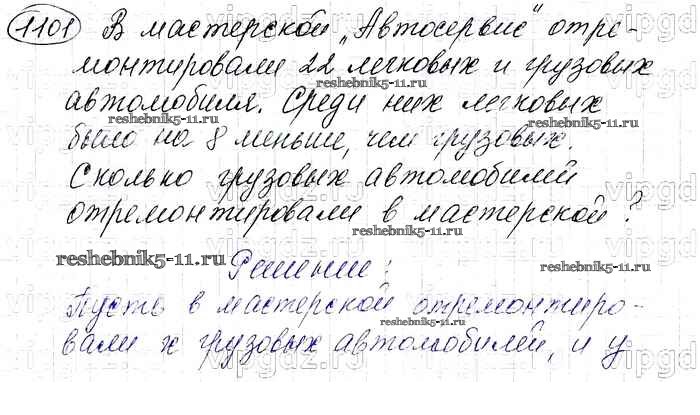 1101 В мастерской „Автосервис" отре-
монтировали 22 легковых и грузовых
reshebnik5-11.ru
автомобиля. Среди них легковых
reshebnik5-11.ru
было на 8 меньше, чем грузовых.
Сколько грузовых автомобилей
reshebnik5-11.ru
отремонтировали в мастерской?
reshebnik5-11.ru Решение: reshebnik5-11.ru
Пусть в мастерской отремонтиро-
reshebnik5-11.ru
вали x грузовых автомобилей, и у